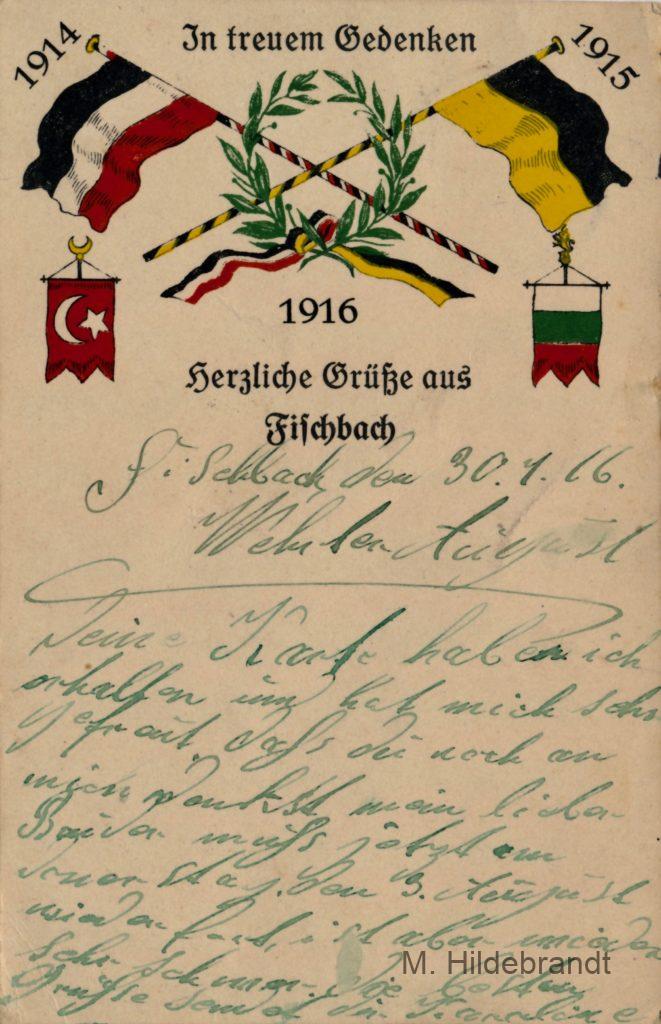 1914
In treuem Gedenken
1915
1916
Herzliche Grüße aus
Fischbach
Fischbach, den 30.7.16.
August
Deine Karte haben ich
erhalten und hat mich sehr
gefreut, daß du noch an
mich denkst, mein lieber
Bruder muß jetzt am
den 3. August
wieder fort, ist aber wieder
sehr
Grüße sendet dir
M. Hildebrandt